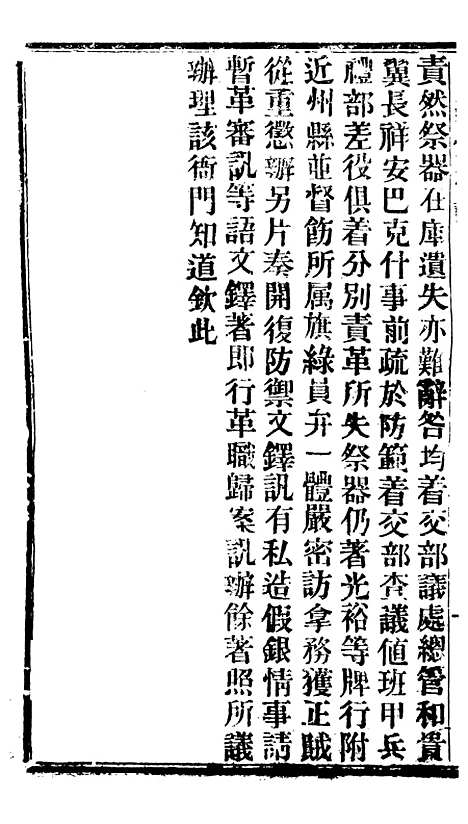 責然祭器在庫遺失亦難辭咎均着交部議處總管和貴
翼長祥安巴克什事前疏於防範着交部查議值班甲兵
禮部差役俱着分別責革所失祭器仍著光裕等牌行附
近州縣並督飭所属旗綠員弁一體嚴密訪拿務獲正賊
從重懲辦另片奏開復防禦文鐸訊有私造假銀情事請
暫革審訊等語文鐸著即行革職歸案訊辦餘著照所議
辦理該衙門知道欽此